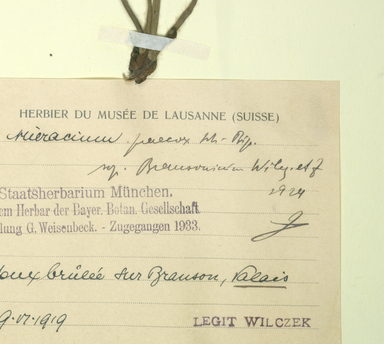 HERBIER DU MUSÉE DE LAUSANNE (SUISSE)
Hieracium praecox Sch-Bip.
Bransonianum Wilcz. et Z
1924
Staatsherbarium München.
em Herbar der Bayer. Botan. Gesellschaft
lung G. Weisenbeck. - Zugegangen 1933.
brûlée sur Branson, Valais
9.VI.1919
LEGIT WILCZEK